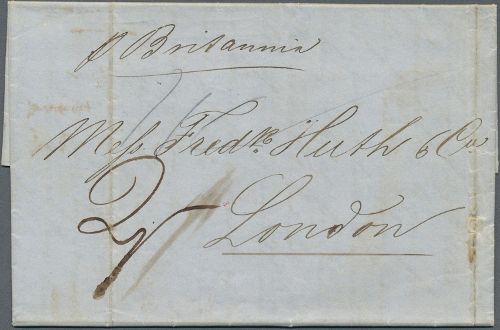 p Britannia
Mess. Fredk. Huth & Co.
2/
London